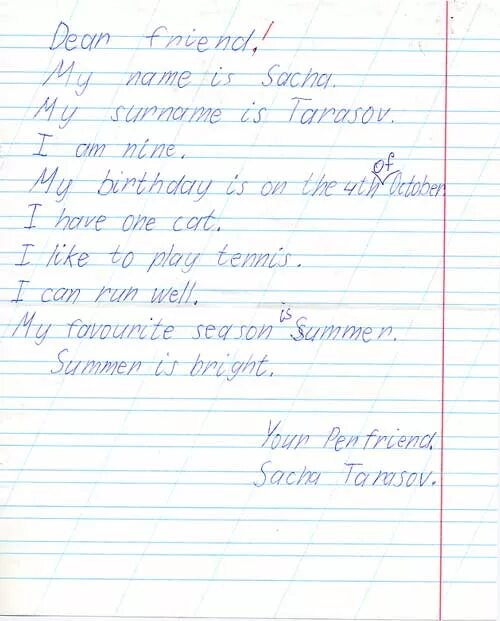 Dear friend,!
My name is Sacha.
My surname is Tarasov.
I am nine.
My birthday is on the 4th of October.
I have one cat.
I like to play tennis.
I can run well.
My favourite season is Summer.
Summer is bright.
Your Penfriend.
Sacha Tarasov.